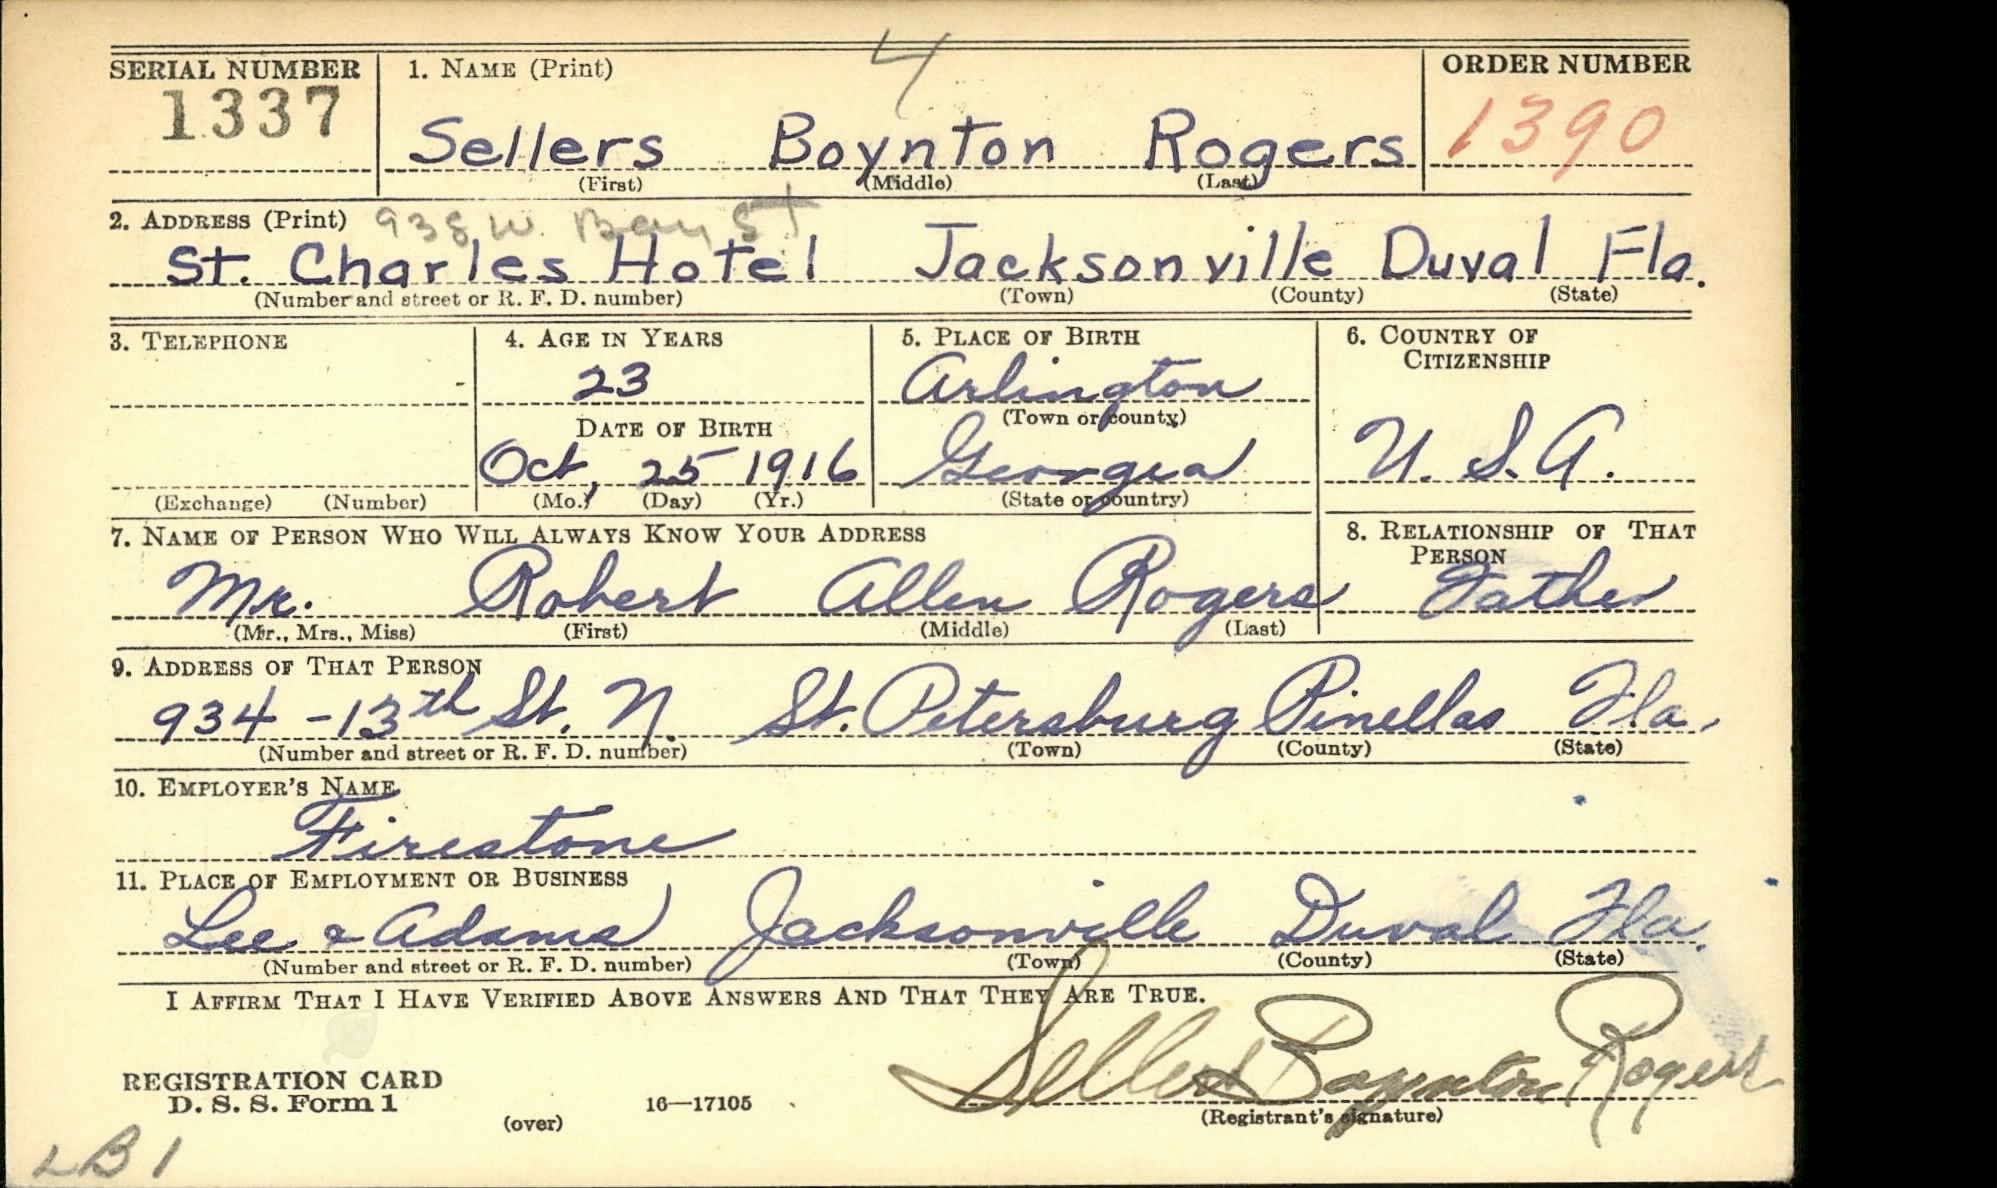 4
SERIAL NUMBER 1. NAME (Print) ORDER NUMBER
1337 Sellers Boynton Rogers 1390
(First) (Middle) (Last)
2. ADDRESS (Print) 938 W. Bay St
St. Charles Hotel Jacksonville Duval Fla.
(Number and street or R. F. D. number) (Town) (County) (State)
3. TELEPHONE 4. AGE IN YEARS 5. PLACE OF BIRTH 6. COUNTRY OF
CITIZENSHIP
23 Arlington
(Town or county)
DATE OF BIRTH
Oct, 25 1916 Georgia U. S. A.
(Exchange) (Number) (Mo.) (Day) (Yr.) (State or country)
7. NAME OF PERSON WHO WILL ALWAYS KNOW YOUR ADDRESS 8. RELATIONSHIP OF THAT
PERSON
Mr. Robert Allen Rogers Father
(Mr., Mrs., Miss) (First) (Middle) (Last)
9. ADDRESS OF THAT PERSON
934 - 13th St. N. St. Petersburg Pinellas Fla.
(Number and street or R. F. D. number) (Town) (County) (State)
10. EMPLOYER'S NAME
Firestone
11. PLACE OF EMPLOYMENT OR BUSINESS
Lee & Adams Jacksonville Duval Fla.
(Number and street or R. F. D. number) (Town) (County) (State)
I AFFIRM THAT I HAVE VERIFIED ABOVE ANSWERS AND THAT THEY ARE TRUE.
Sellers Boynton Rogers
REGISTRATION CARD
D. S. S. Form 1 16—17105 (Registrant's signature)
(over)
LB 1